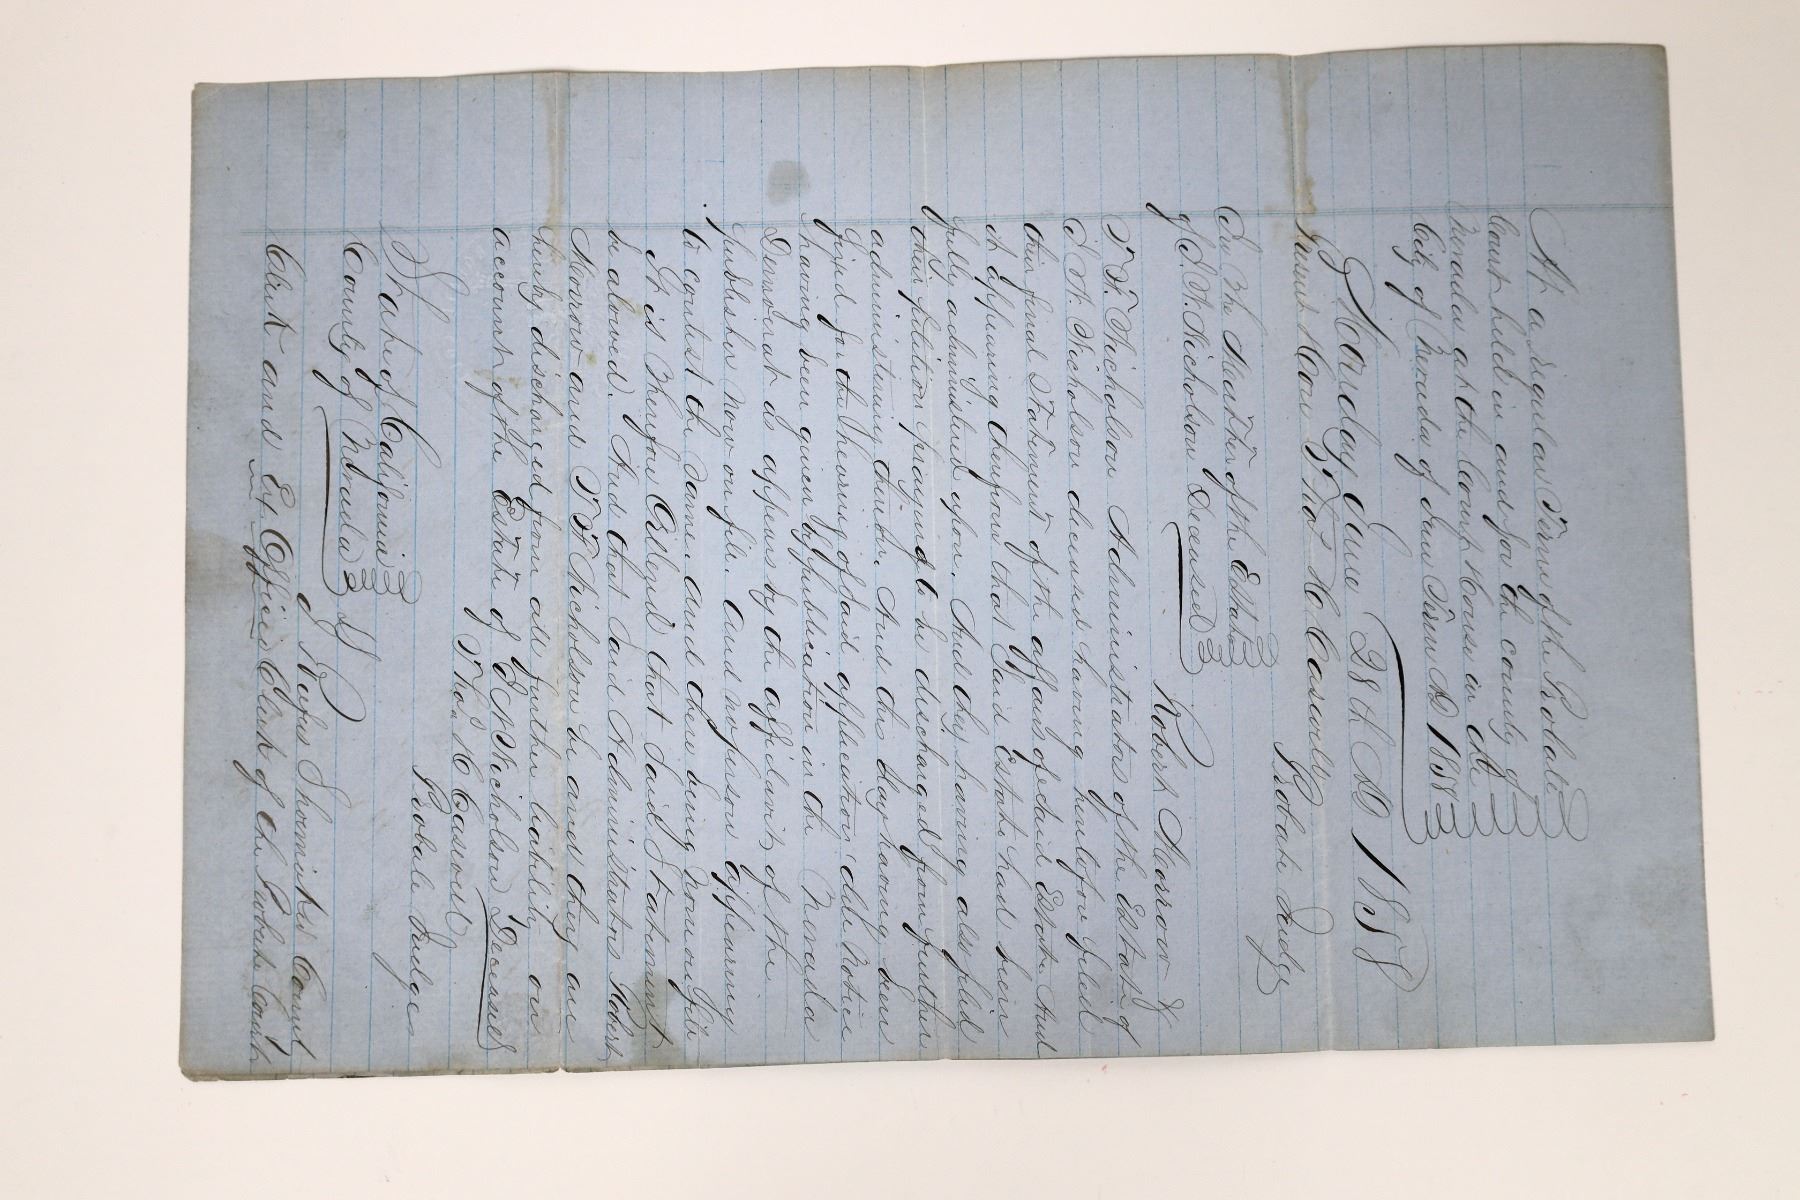 At a Regular Term of the Probate
Court held in and for the county of
Nevada at the Court House in the
City of Nevada of June Term AD 1858
Monday June 28th AD 1858
Present Hon Thos H Caswell
Probate Judge
In the Matter of the Estate
of S. N. Nicholson Deceased
Robert Morrow &
T. F. Nicholson Administrators of the Estate of
S. N. Nicholson deceased having heretofore filed
their final Statement of the affairs of said Estate And
it appearing therefrom that said Estate had been
fully administered upon. And they having also filed
their petition praying to be discharged from further
administering thereon. And this day having been
fixed for the hearing of said application due Notice
having been given by publication in the Nevada
Democrat as appears by the affidavit of the
publisher now on file. And no person appearing
to contest the same and there being no money for
It is Therefore Ordered that said Statement
be alowed. And that said Administrators Robert
Morrow and T. F. Nicholson be and they are
hereby discharged from all further liability on
account of the Estate of S N Nicholson Deceased
Thos H Caswell
Probate Judge
State of California
County of Nevada SS
I Rufus Shoemaker County
Clerk and Ex Officio Clerk of the Probate Court